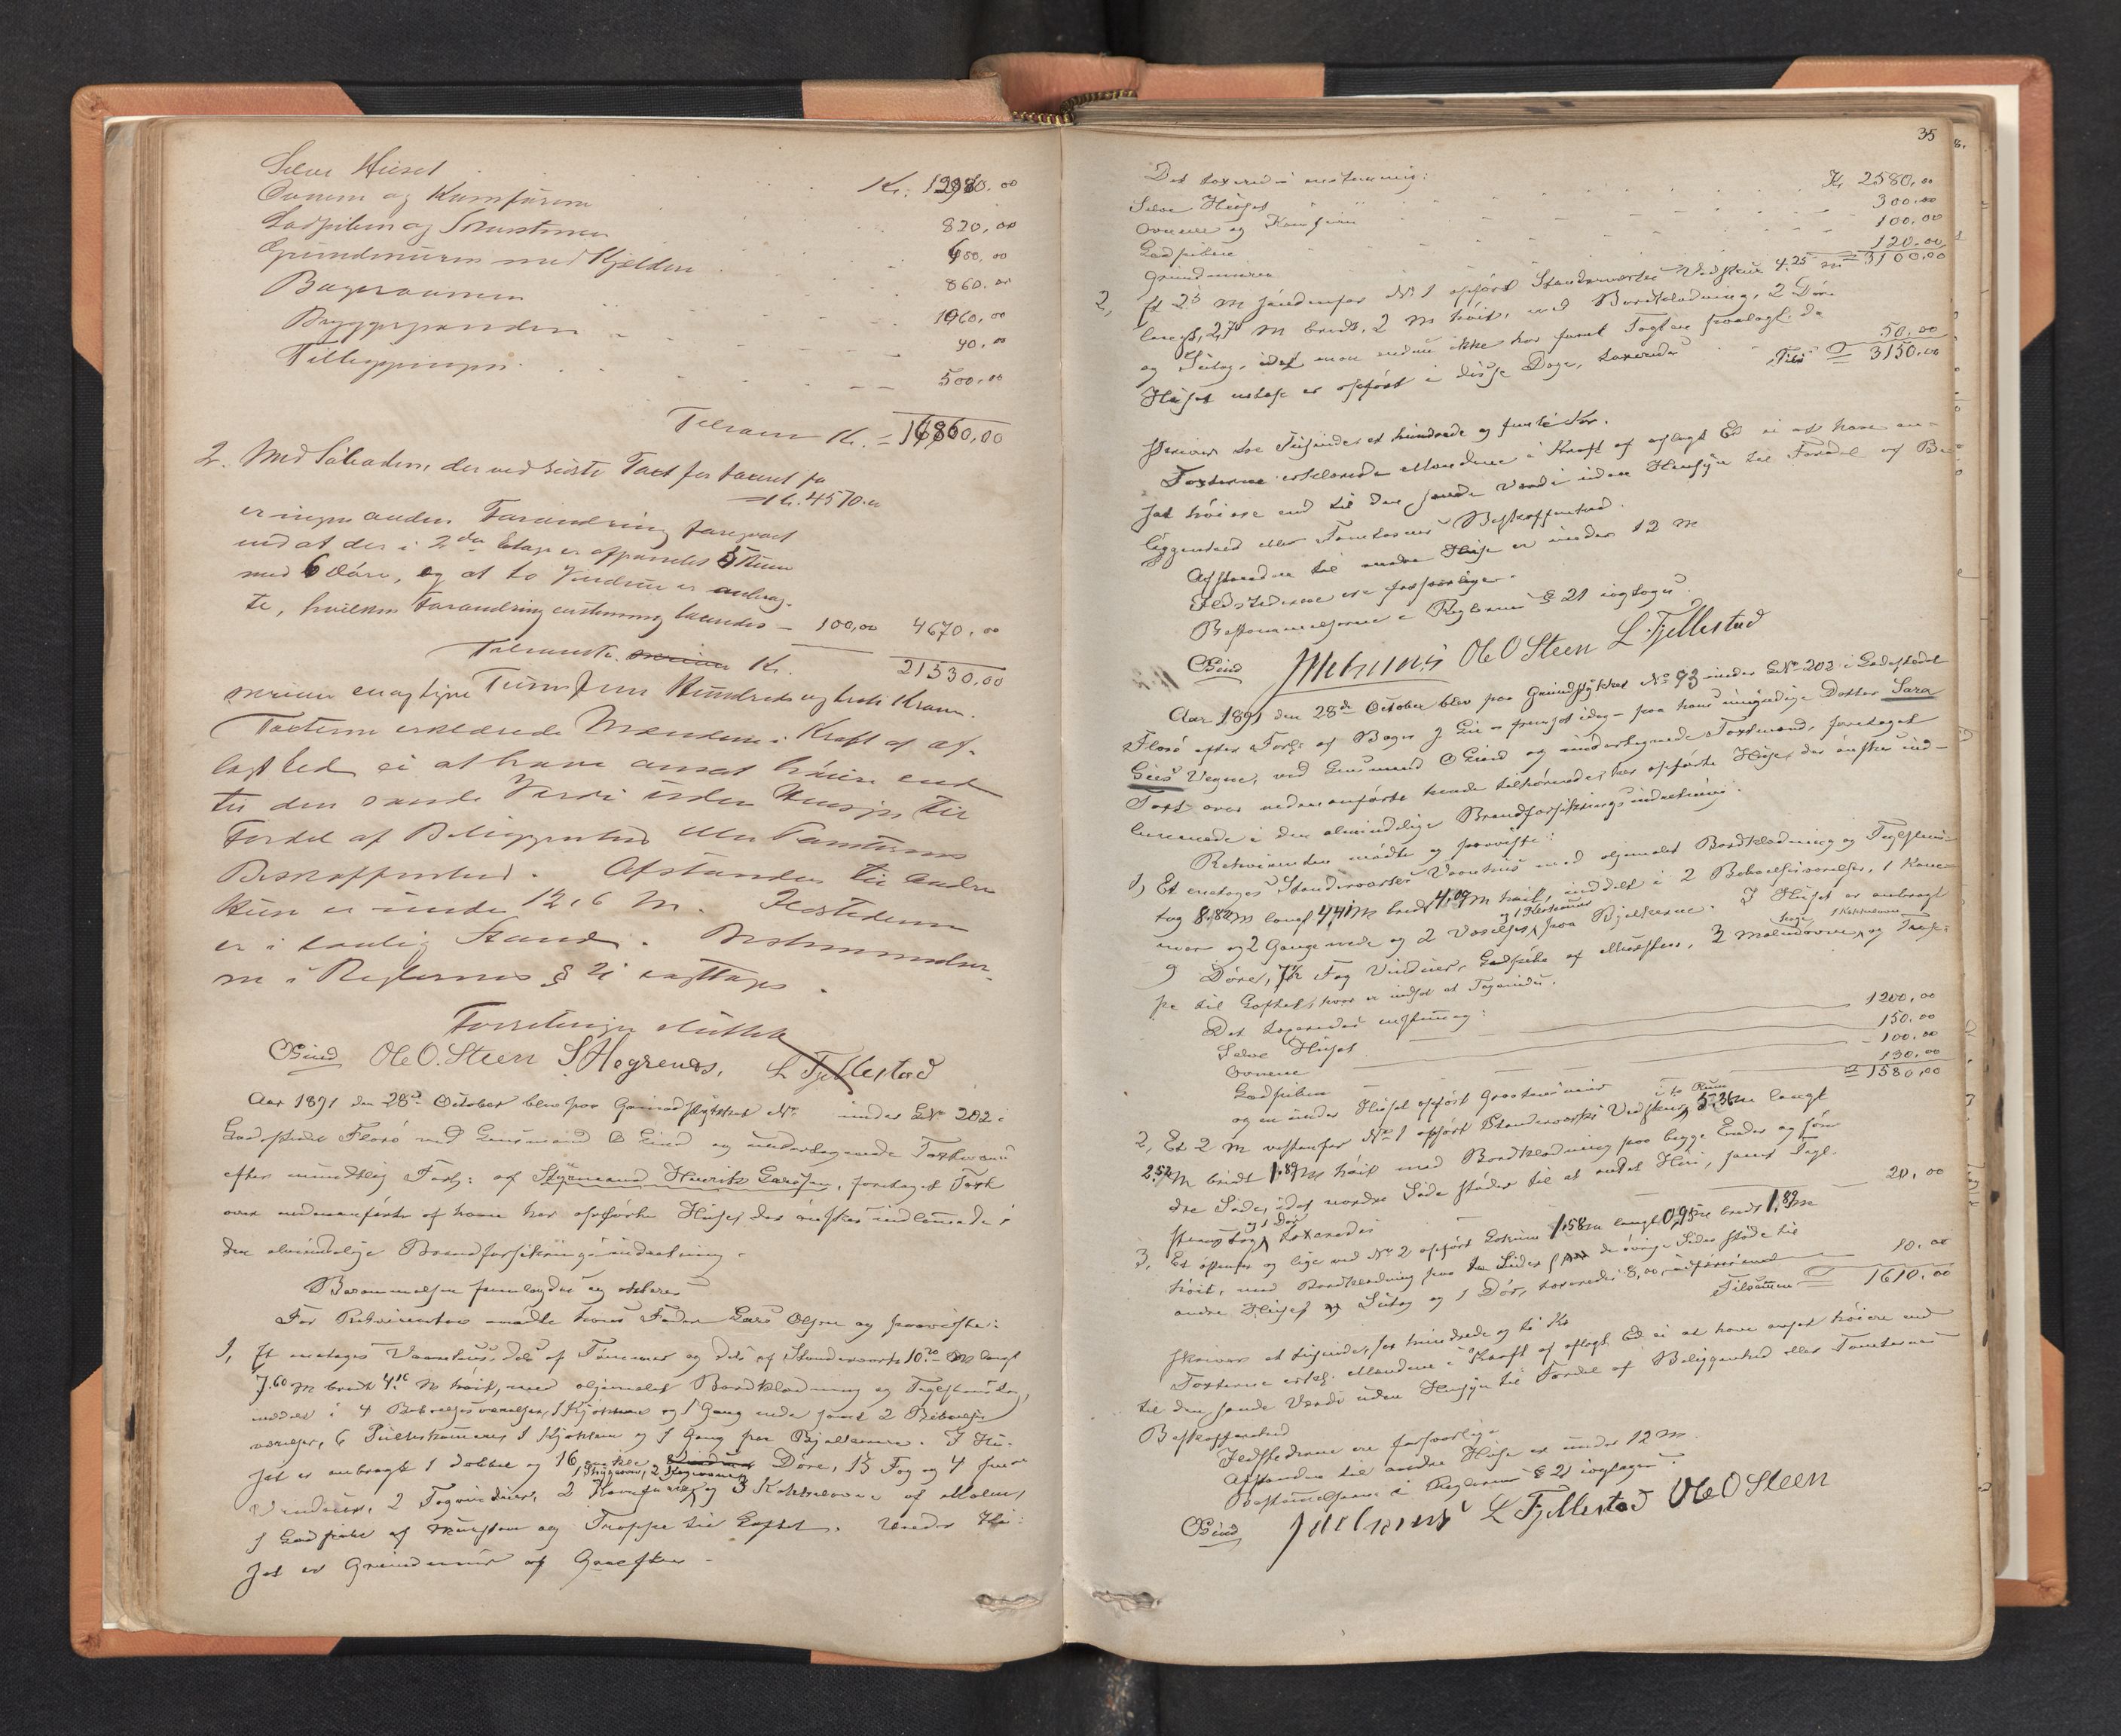 Selve Huset Kr. 12980.00
Ovnene og Kamfurene 820,00
Ladpiben og Skorstenen 600,00
Grundmuren med Kjelderen 860.00
Bagerovnen 1060,00
Bryggepanden 40.00
Tilbygningen 500,00
Tilsam Kr. = 16860,00
2. Med Søboden, der ved sidste Taxt for taxeret for
Kr. 4570.00
er ingen anden Forandring foregaaet
end at der i 2den Etage er afpanelet 5 Rum
med 6 Døre, og at to Vinduer er anbrag-
te, hvilken Forandring enstemmig taxeredes – 100,00 4670,00
Tilsammen Kr. 21530,00
skriver en og tyve Tusen fem Hundrede og treti Kroner.
Taxterne erklærede Mændene i Kraft af af-
lagt Ed ei at have ansat høiere end
til den sande Værdi uden Hensyn til
Fordel af Beliggenhed eller Panternes
Beskaffenhed. Afstanden til andre
Huse er under 12,6 M. Ildstederne
er i lovlig Stand. Bestemmelser-
ne i Reglernes § 21 iagttages.
Forretningen sluttet
OGiud Ole O. Steen S. Hogrenæs, L Fjellestad
Aar 1891 den 28de October blev paa Grundstykket No under GNo 202 i
Ladestedet Florø ved Lensmand O Giud og undertegnede Taxtmænd
efter mundtlig Forlg: af Styrmand Henrik Larsen, foretaget Taxt
over nedenanførte af ham her opførte Huse, der ønskes indlemmede i
den almindelige Brandforsikringsindretning.
Berammelsen fremlagdes og
For Rekvirenten mødte hans Fader Lars Olsen og paaviste:
1, Et enetages Vaanhus, dels af Tømmer og dels af Standerværk 10.20 M langt
7.60 M bredt 4.16 M høit, med oljemalet Bordklædning og Taglstenstag,
inddelt i 4 Beboelsesværelser, 1 Kjøkken og 1 Gang nede samt 2 Beboelses
værelser, 6 Pulterkamere, 1 Kjøkken og 1 Gang paa Bjelkerne. I Hu-
set er anbragt 1 dobbel og 16 enkle Døre, 13 Fag og 4 Smaa
1 Strygeovn, 2 Kogeovne
Vinduer, 2 Tagvinduer, 2 Kamfurer og 3 Kakkelovne af Malm,
1 Ladpibe af Mursten og Trappe til Loftet. Under Hu-
set er Grundmur af Graasten.
35
Det taxeredes enstemmig:
Selve Huset Kr 2580,00
Ovnene og Kamfurene 300.00
Ladpiben 100,00
Grundmuren 120.00
= 3100.00
2, Et 25 M søndenfor No 1 opført Standerværks Vedskur 4.25 M
langt, 2,70 M bredt, 2 M høit, med Bordklædning, 2 Døre
og Sutag, idet man endnu ikke har faaet Taglen paalagt, da
Huset netop er opført i disse Dage, taxeredes 50,00
Tils = 3150.00
skriver tre Tusinde et hundrede og femti Kr.
Taxterne erklærede Mændene i Kraft af aflagt Ed ei at have an-
sat høiere end til den sande Værdi uden Hensyn til Fordel af Be-
liggenhed eller Panternes Beskaffenhed.
Afstanden til andre Huse er under 12 M
Ildstederne ere forsvarlige.
Bestemmelserne i Reglernes § 21 iagtoges.
OGiud Ole O Steen L Fjellestad
Aar 1891 den 28de October blev paa Grundstykket No 93 under GNo 202 i Ladestedet
Florø efter Forlg af Bager J Gie – fremsat idag – paa hans umyndige Datter Sara
Gies Vegne, ved Lensmand O Giud og undertegnede Taxtmænd, foretaget
Taxt over nedenanførte hende tilhørende, her opførte Huse, der ønskes ind-
lemmede i den almindelige Brandforsikringsindretning.
Rekvirenten mødte og paaviste:
1) Et enetages Standerværks Vaanhus med oljemalet Bordklædning og Taglstens-
tag 8.82 M langt 4.41 M bredt 4,09 M høit, inddelt i 2 Beboelsesværelser, 1 Kam-
mer og 2 Gange nede og 2 Værelser og 1 Klædkammer paa Bjelkerne. I Huset er anbragt
9 Døre, 7½ Fag Vinduer, Ladpibe af Mursten, 2 Malmovne, 1 Kakkelovn og Trap-
pe til Loftet, hvor er indsat et Tagvindu.
Det taxeredes enstemmig:
Selve Huset 1200,00
Ovnene 150,00
Ladpiben 100,00
og en under Huset opført Graastensmur 130.00
= 1580,00
2, Et 2 M vestenfor No 1 opført Standerværks Vedskur i to Rum 5.36 M langt
2.52 M bredt 1.89 M høit med Bordklædning paa begge Ender og søn-
dre Side, idet nordre Side støder til et andet Hus, samt Tagl-
stenstag og 1 Dør taxeredes 20,00
3, Et østenfor og lige ved No 2 opført Lokum 1,58 M langt 0,95 M bredt 1,89 M
høit, med Bordklædning paa to Sider, da de øvrige Sider støde til
andre Huse, Sutag og 1 Dør, taxeredes 10.00
Tilsammen 1610,00
skriver et tusinde sex hundrede og ti Kr
Taxterne erkl. Mændene i Kraft af aflagt Ed ei at have ansat høiere end
til den sande Værdi uden Hensyn til Fordel af Beliggenhed eller Panternes
Beskaffenhed
Ildstederne ere forsvarlige
Afstanden til andre Huse er under 12 M.
Bestemmelserne i Reglernes § 21 iagtages.
OGiud L Fjellestad Ole O Steen